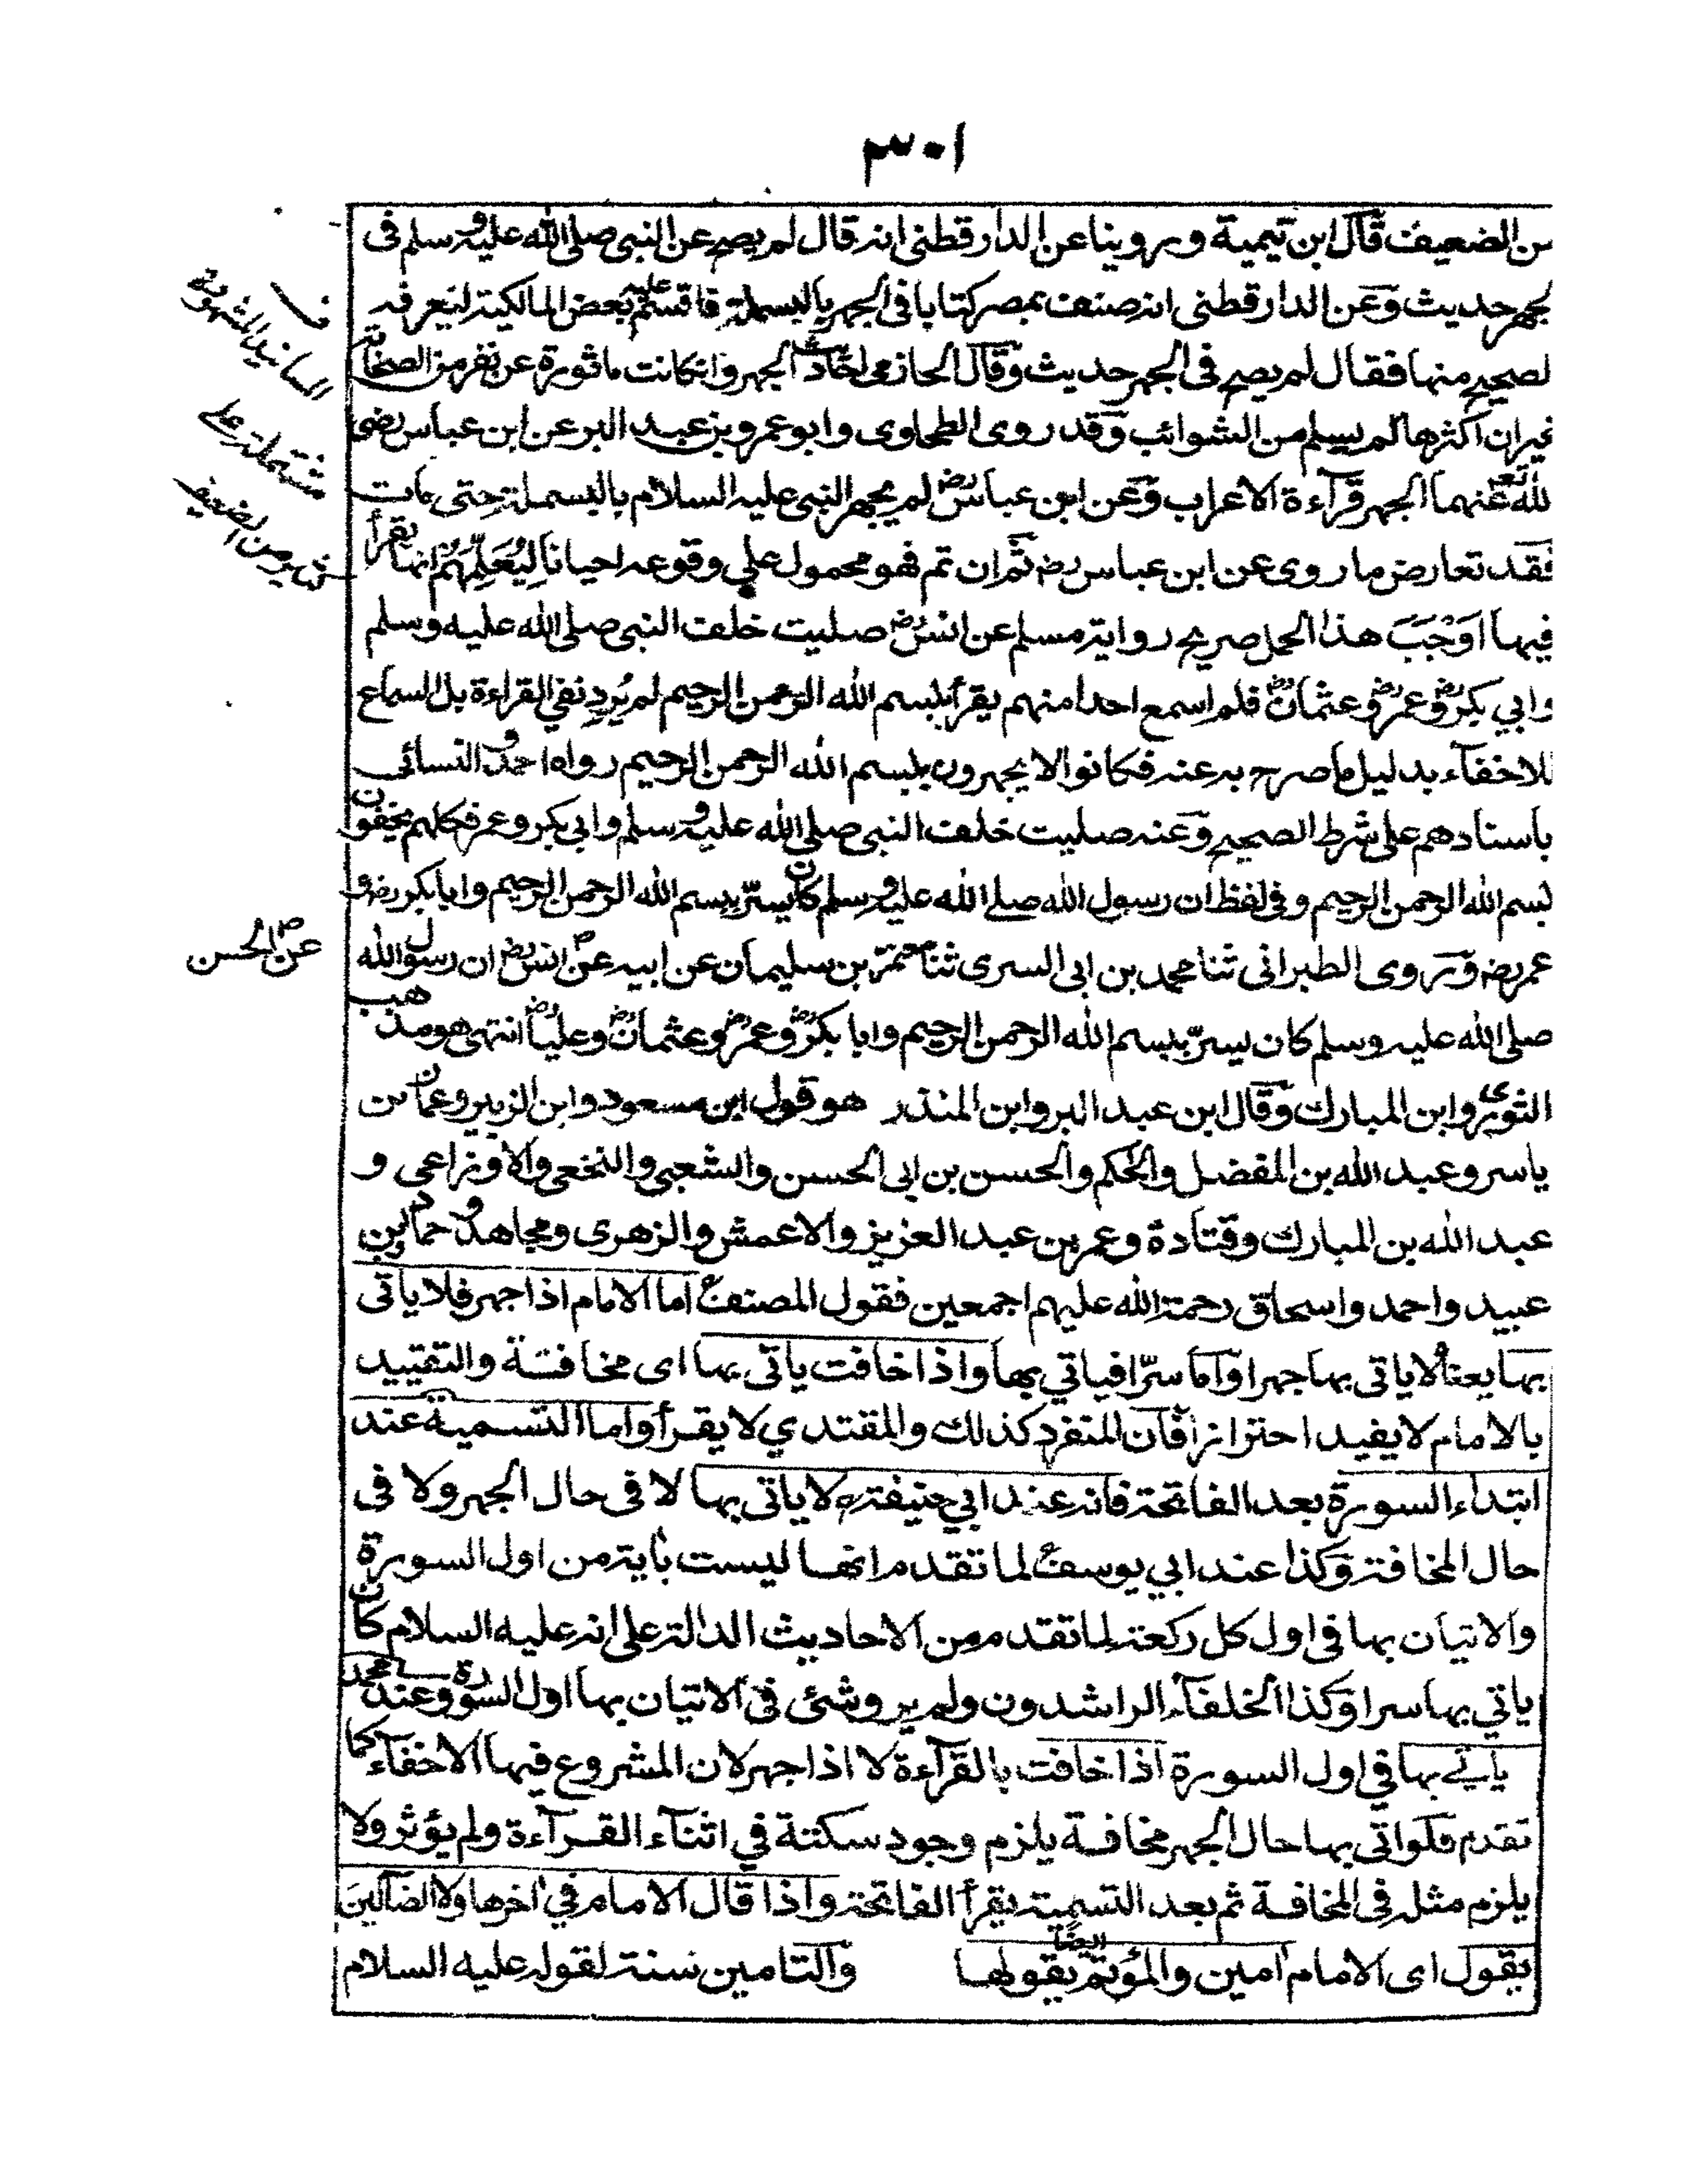 ٣٠١
من الضعيف قال ابن تيمية وروينا عن الدارقطنى انه قال لم يصح عن النبى صلى الله عليه وسلم فى
لجهر حديث وعن الدارقطنى انه صنف بمصر كتابا فى الجهر بالبسملة فاقسم عليه بعض المالكية ليعرفه
لصحيح منها فقال لم يصح فى الجهر حديث وقال الحازمى احاديث الجهر وان كانت ماثورة عن نفر من الصحابة
غير ان اكثرها لم يسلم من الشوائب وقد روى الطحاوى وابو عمرو بن عبد البر عن ابن عباس رضى
لله تع عنهما الجهر قرآءة الاعراب وعن ابن عباس رض لم يجهر النبى عليه السلام بالبسملة حتى مات
فقد تعارض ما روى عن ابن عباس رض ثم ان تم فهو محمول على وقوعه احيانا ليُعَلِّمَهُمْ انها يقرأ
فيها اَوْجَبَ هذا الحمل صريح رواية مسلم عن انس رض صليت خلف النبى صلى الله عليه وسلم
وابي بكر رض وعمر رض وعثمان رض فلم اسمع احدا منهم يقرأ بسم الله الرحمن الرحيم لم يُرِدْ نفي القراءة بل السماع
للاخفآء بدليل ما صرح به عنه فكانوا لا يجهرون ببسم الله الرحمن الرحيم رواه احمد و النسائى
باسناد هم على شرط الصحيح وعنه صليت خلف النبى صلى الله عليه وسلم وابى بكر وعمر فكلهم يخفون
بسم الله الرحمن الرحيم وفى لفظ ان رسول الله صلى الله عليه وسلم كان يسرّ ببسم الله الرحمن الرحيم وابا بكر رض و
عمر رض وروى الطبرانى ثنا محمد بن ابى السرى ثنا معتمر بن سليمان عن ابيه عن انس رض ان رسول الله
عن الحسن صح
صلى الله عليه وسلم كان يسرّ ببسم الله الرحمن الرحيم وابا بكر رض وعمر رض وعثمان رض وعليا رض انتهى هو مذهب
الثورى وابن المبارك وقال ابن عبد البر وابن المنذر هو قول ابن مسعود وابن الزبير وعمار بن
ياسر وعبد الله بن المفضل والحكم والحسن بن ابى الحسن والشعبي والنخعى والاوزاعى و
عبد الله بن المبارك وقتادة وعمر بن عبد العزيز والاعمش والزهرى ومجاهد و حماد وابن
عبيد واحمد واسحاق رحمة الله عليهم اجمعين فقول المصنف اما الامام اذا جهر فلا ياتى
بها يعنى لا ياتى بها جهرا واما سرّا فياتي بها واذا خافت ياتى بها اى مخافتة والتقييد
بالامام لا يفيد احترازا فان المنفرد كذلك والمقتدي لا يقرأ واما التسمية عند
ابتداء السورة بعد الفاتحة فانه عند ابي حنيفة لا ياتى بها لا فى حال الجهر ولا فى
حال المخافتة وكذا عند ابي يوسف لما تقدم انها ليست بأية من اول السورة
والاتيان بها فى اول كل ركعة لما تقدم من الاحاديث الدالة على انه عليه السلام كان
ياتي بها سرا وكذا الخلفآء الراشدون ولم يرو شئى فى الاتيان بها اول السورة وعند محمد
ياتي بها في اول السورة اذا خافت بالقرآءة لا اذا جهر لان المشروع فيها الاخفآء كما
تقدم فلو اتى بها حال الجهر مخافة يلزم وجود سكتة في اثنآء القرآءة ولم يؤثر ولا
يلزم مثله فى المخافة ثم بعد التسمية يقرأ الفاتحة واذا قال الامام في اخرها ولا الضآلين
يقول اى الامام امين والمؤتم ايضا يقولها والتامين سنة لقوله عليه السلام
المسانيد المشهورة
مشتملة على
من الضعيف